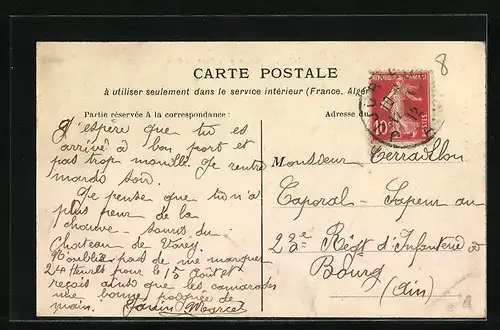 8
CARTE POSTALE
à utiliser seulement dans le service intérieur (France, Algér
Partie réservée à la correspondance:
Adresse du
10
POSTES
J'espère que tu es
arrivé à bon port et
pas trop mouillé. Je rentre
mardi soir.
Je pense que tu n'a
plus peur de la
chauve-souris du
Chateau de Varey
N'oublie pas de me marquer
24 heures pour le 15 Août et
reçois ainsi que les camarades
une bonne poignée de
main. Jardin Marcel
Monsieur Terraillon
Caporal-Sapeur au
23e Régt d'Infanterie à
Bourg
(Ain)